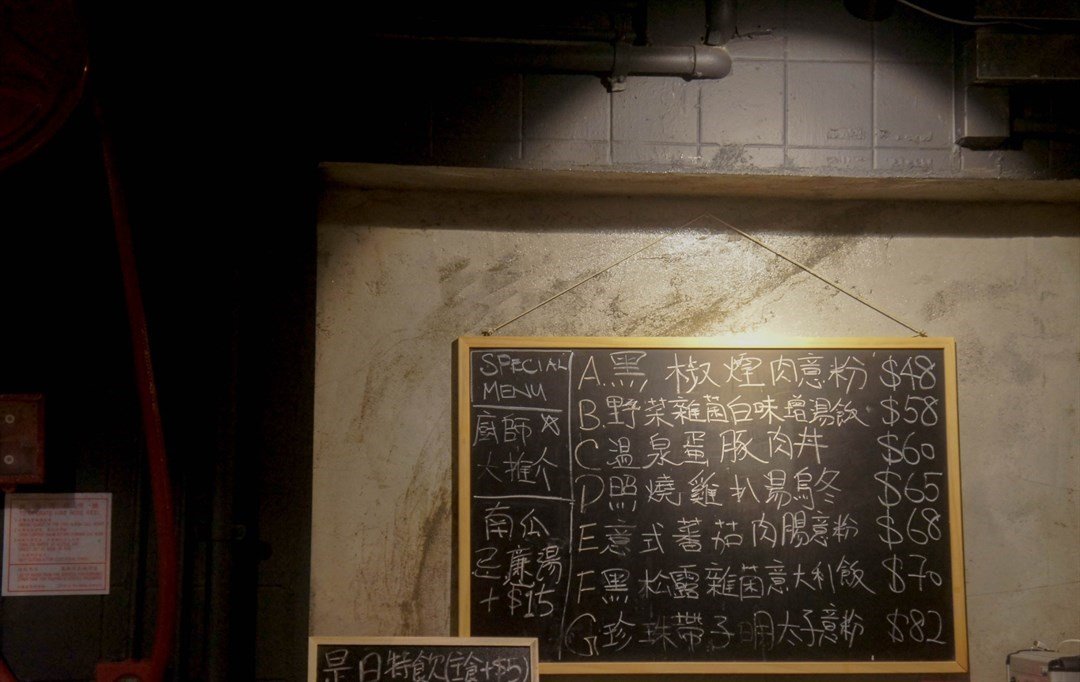 SPECIAL
MENU
廚師☆
大推介
南瓜
忌廉湯
+$15
A.黑椒煙肉意粉 $48
B.野菜雜菌白味增湯飯 $58
C温泉蛋豚肉丼 $60
D照燒雞扒湯烏冬 $65
E意式蕃茄肉腸意粉 $68
F黑松露雜菌意大利飯 $70
G珍珠帶子明太子意粉 $82
是日特飲(主食+$5)